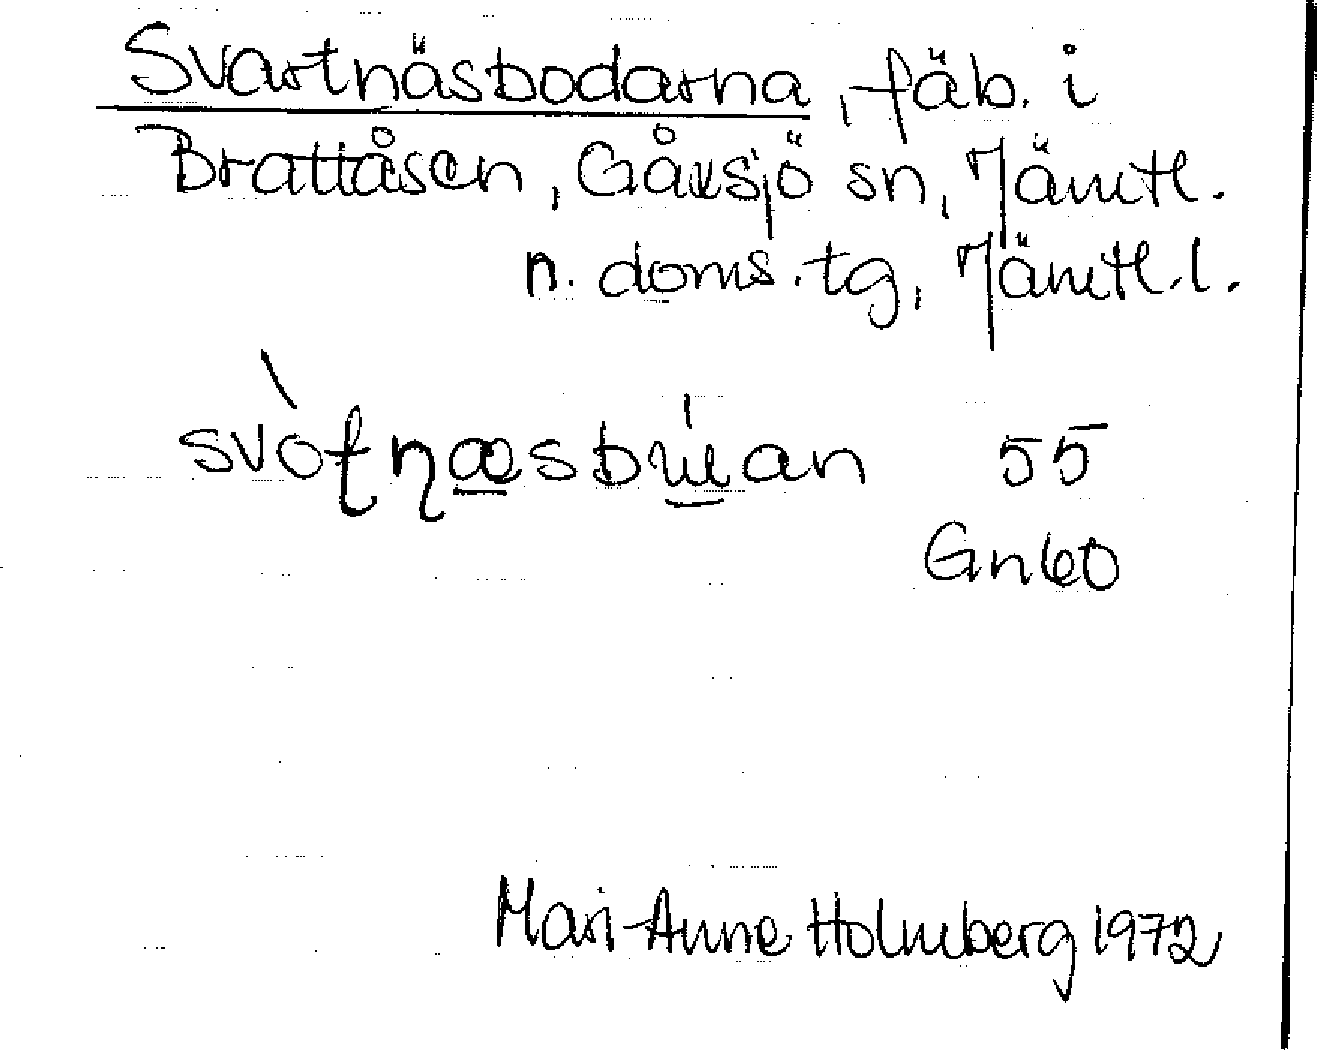 Svartnäsbodarna, fäb. i
Brattåsen, Gåxsjö sn, Jämtl.
n. doms. tg, Jämtl. l.
svòʈɳæsbu̇an 55
Gn60
Mari-Anne Holmberg 1972